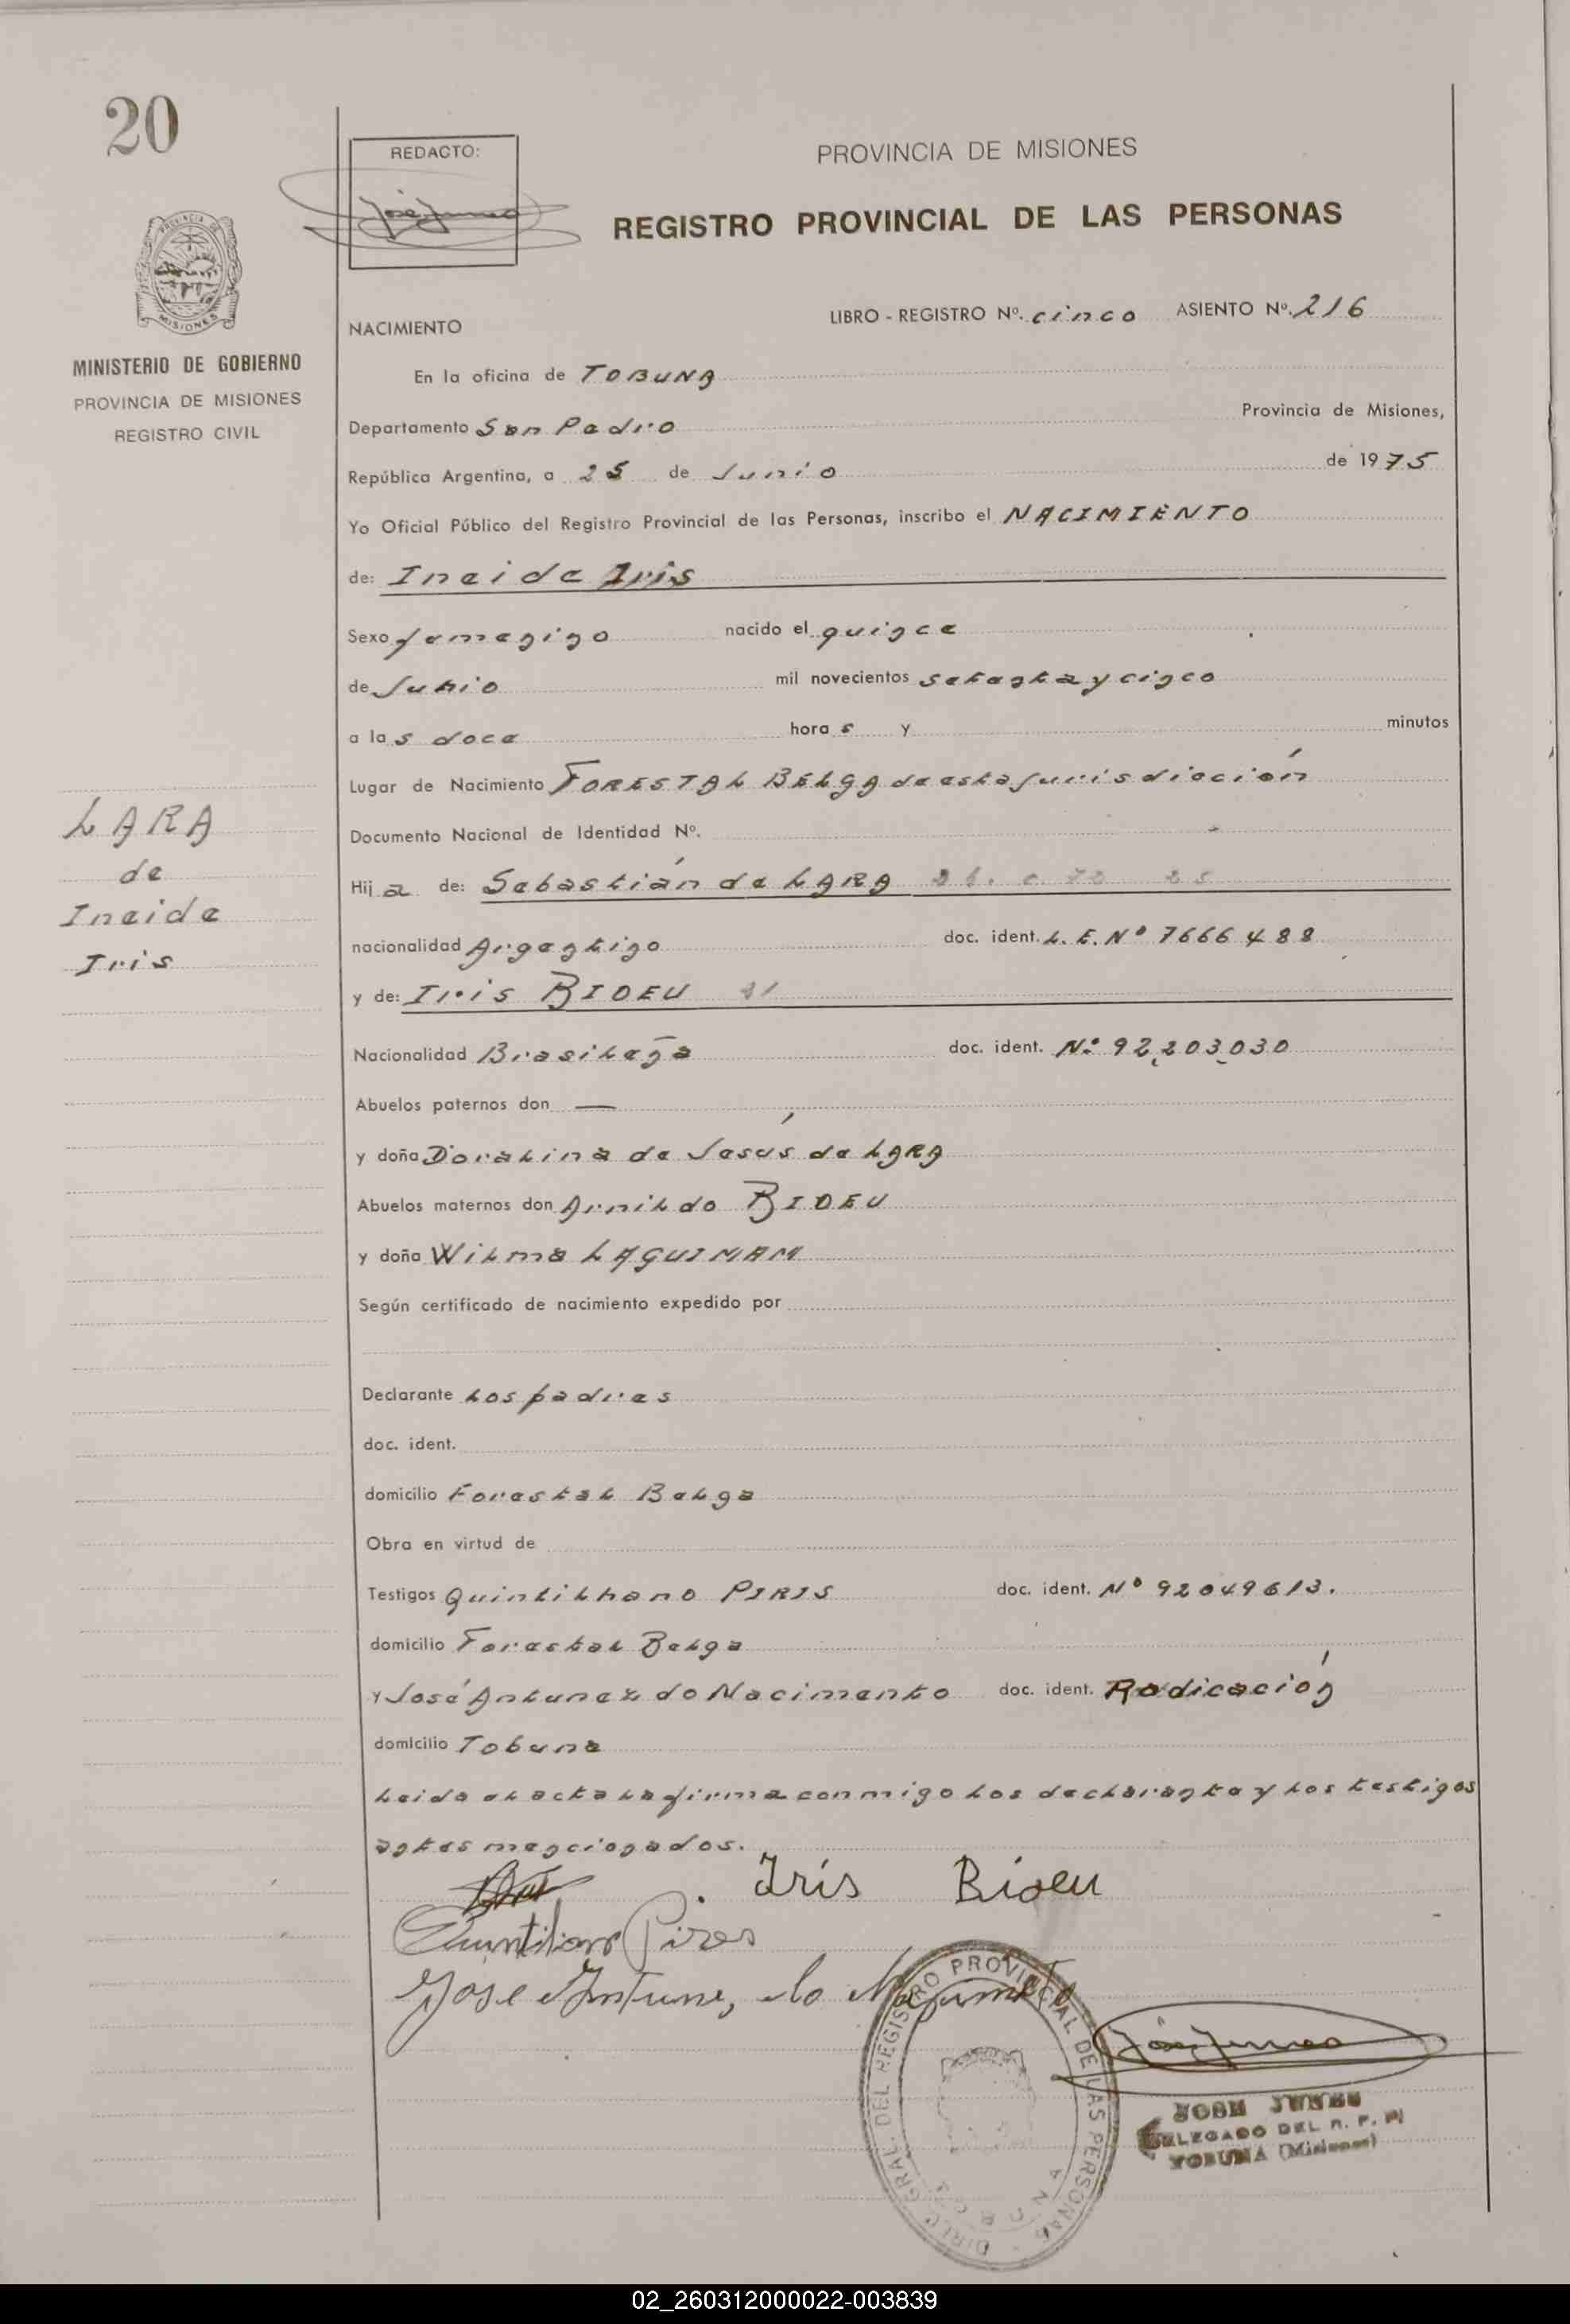 20
REDACTO:
PROVINCIA DE MISIONES
REGISTRO PROVINCIAL DE LAS PERSONAS
MISIONES
MINISTERIO DE GOBIERNO
PROVINCIA DE MISIONES
REGISTRO CIVIL
LIBRO - REGISTRO Nº. cinco ASIENTO Nº. 216
NACIMIENTO
En la oficina de TOBUNA
Departamento San Pedro Provincia de Misiones,
República Argentina, a 25 de Junio de 1975
Yo Oficial Público del Registro Provincial de las Personas, inscribo el NACIMIENTO
de: Ineide Iris
Sexo femenino nacido el quince
de Junio mil novecientos setenta y cinco
a las doce horas y minutos
Lugar de Nacimiento FORESTAL BELGA de esta Jurisdicción
Documento Nacional de Identidad Nº.
LARA
de
Ineide
Iris
Hija de: Sebastián de LARA
nacionalidad Argentino doc. ident. L.E. Nº 7666488
y de: Iris BIDEU 21
Nacionalidad Brasileña doc. ident. Nº 92,203,030
Abuelos paternos don —
y doña Doralina de Jesús de LARA
Abuelos maternos don Arnildo BIDEU
y doña Wilma LAGUINAM
Según certificado de nacimiento expedido por
Declarante Los padres
doc. ident.
domicilio Forestal Belga
Obra en virtud de
Testigos Quintilhano PIRIS doc. ident. Nº 92049613.
domicilio Forestal Belga
y José Antunez do Nacimento doc. ident. Radicación
domicilio Tobuna
Leida el acta la firma conmigo los declarante y los testigos
antes mencionados.
Irís Bideu
Quintiliano Pires
Jose Antunes do
DIRECC. GRAL. DEL REGISTRO PROVINCIAL DE LAS PERSONAS
TOBUNA
JOSE JUNES
DELEGADO DEL R. P. P.
TOBUNA (Misiones)
02_260312000022-003839